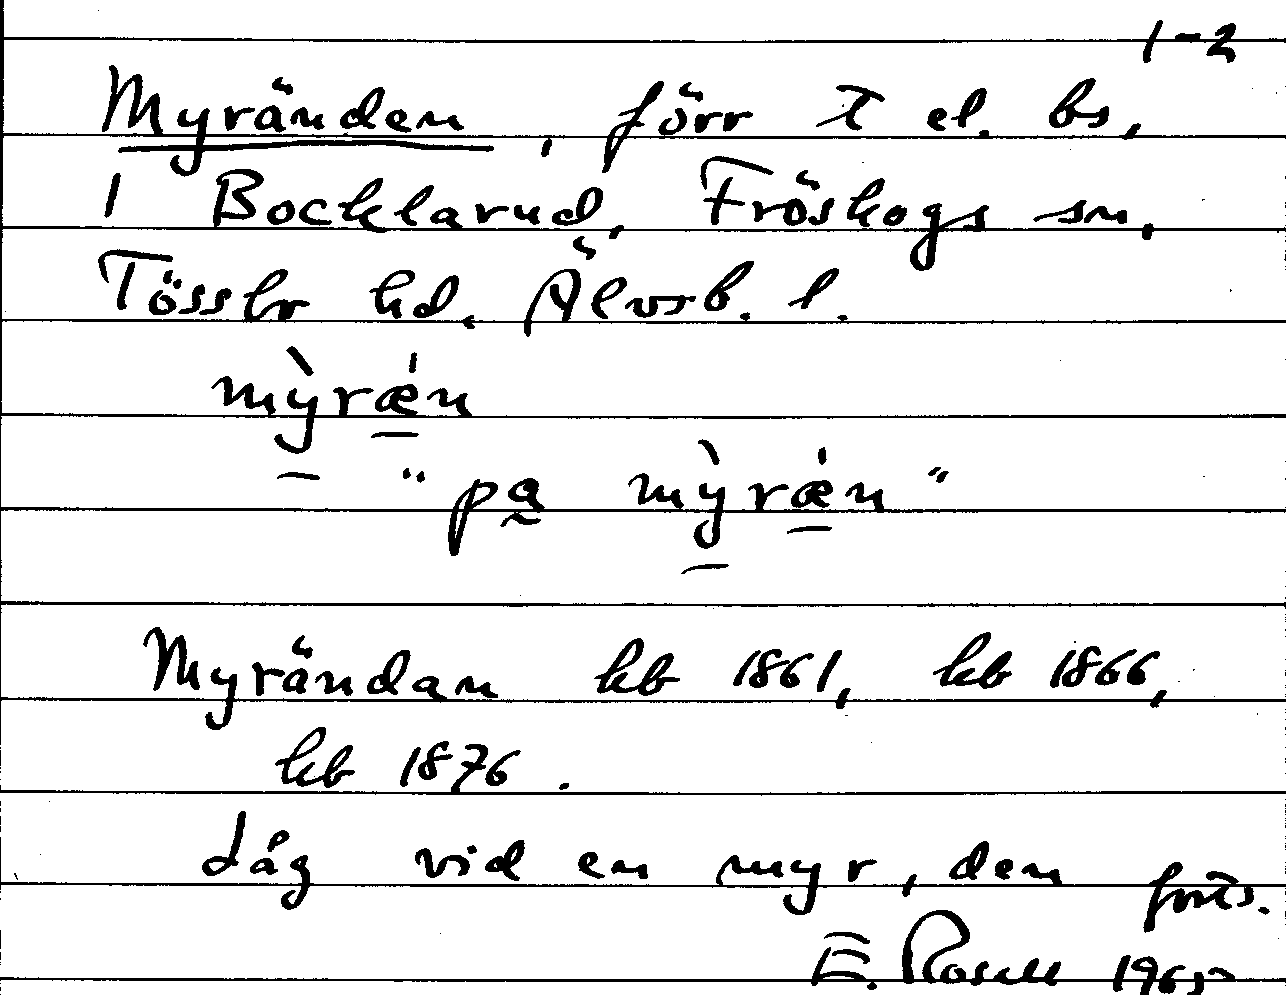 1-2
Myränden, förr T el. bs,
I Bocklarud, Fröskogs sn,
Tössbo hd. Älvsb. l.
mỳrǽn
"pa mỳrǽn"
Myrändan kb 1861, kb 1866,
kb 1876.
Låg vid en myr, den forts.
E. Rosell 1965